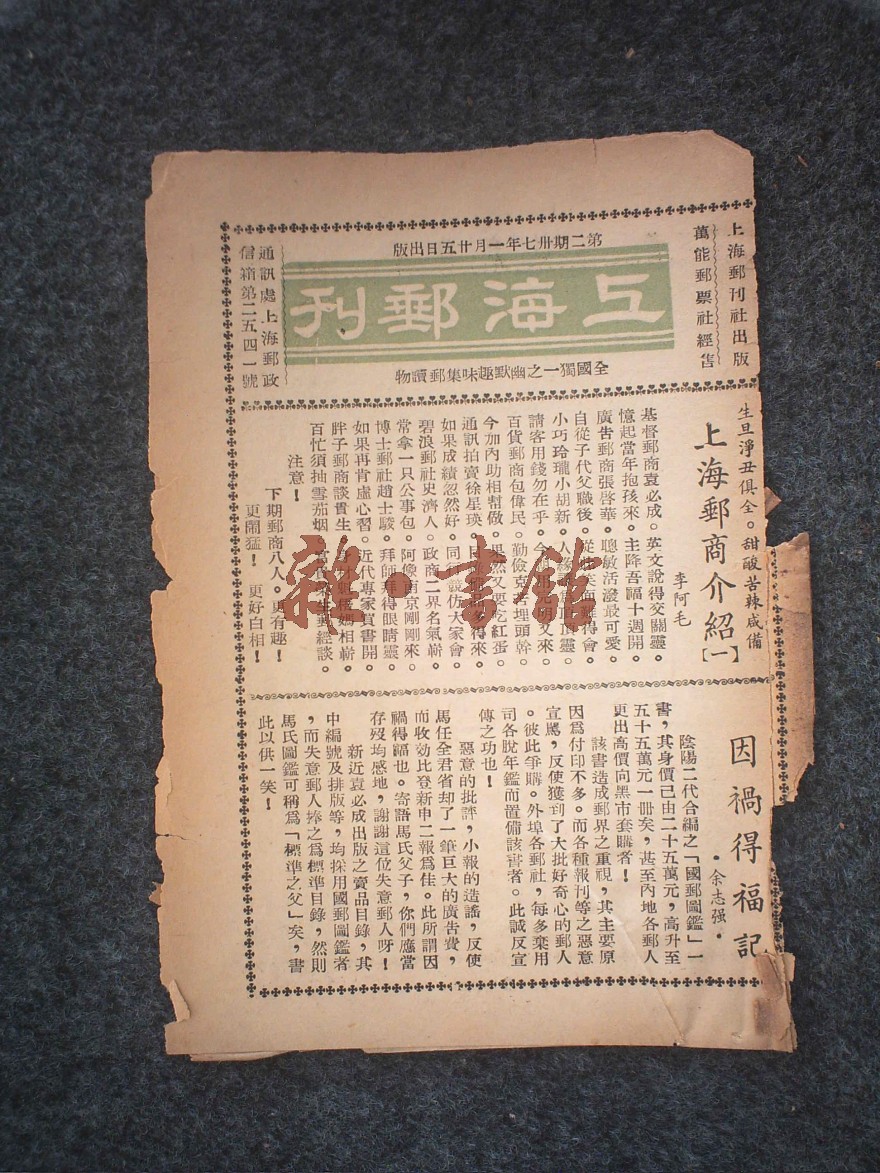 上海郵刊社出版
萬能郵票社經售
第二期卅七年一月廿五日出版
上海郵刊
全國獨一之幽默趣味集郵讀物
通訊處上海郵政
信箱第二五四一號
生旦淨丑俱全。甜酸苦辣咸備
上海郵商介紹【一】
李阿毛
基督郵商袁必成。英文說得交關靈。
憶起當年抱孩來。主降吾福十週開。
廣告郵商張啓華。聰敏活潑最可愛。
自從子代父職後。從
小巧玲瓏小胡新。人
請客用錢勿在乎。今
百貨郵商包偉民。勤儉克苦埋頭幹。
今加內助相幇做。果然又要吃紅蛋。
通訊拍賣徐星瑛。
如果成績忽然好。同行競仿大家會。
碧浪郵社史濟人。政商二界名氣嶄。
常拿一只公事包。阿像南京剛剛來。
博士郵社趙士駿。拜師拜得眼睛靈。
如果再肯虛心習。近代專家買書開。
胖子郵商談貴生。
百忙須抽雪茄烟。
注意！
下期郵商八人。更有趣！
更鬧猛！更好白相！
因禍得福記
·余志强·
陰陽二代合編之「國郵圖鑑」一
書，其身價已由二十五萬元，高升至
五十五萬元一冊矣，甚至內地各郵人
更出高價向黑市套購者！
該書造成郵界之重視，其主要原
因爲付印不多。而各種報刊等之惡意
宣駡，反使獲到了大批好奇心的郵人
。彼此爭購。外埠各郵社，每多棄用
司各脫年鑑而置備該書者。此誠反宣
傳之功也！
惡意的批評，小報的造謠，反使
馬任全君省却了一筆巨大的廣告費，
而收効比登新申二報爲佳。此所謂因
禍得福也。寄語馬氏父子，你們應當
存歿均感地，謝謝這位失意郵人呀！
新近袁必成出版之賣品目錄，其
中編號及排版等，均採用國郵圖鑑者
，而失意郵人捧之爲標準目錄，然則
馬氏圖鑑可稱爲「標準之父」矣，書
此以供一笑！
雜·書館